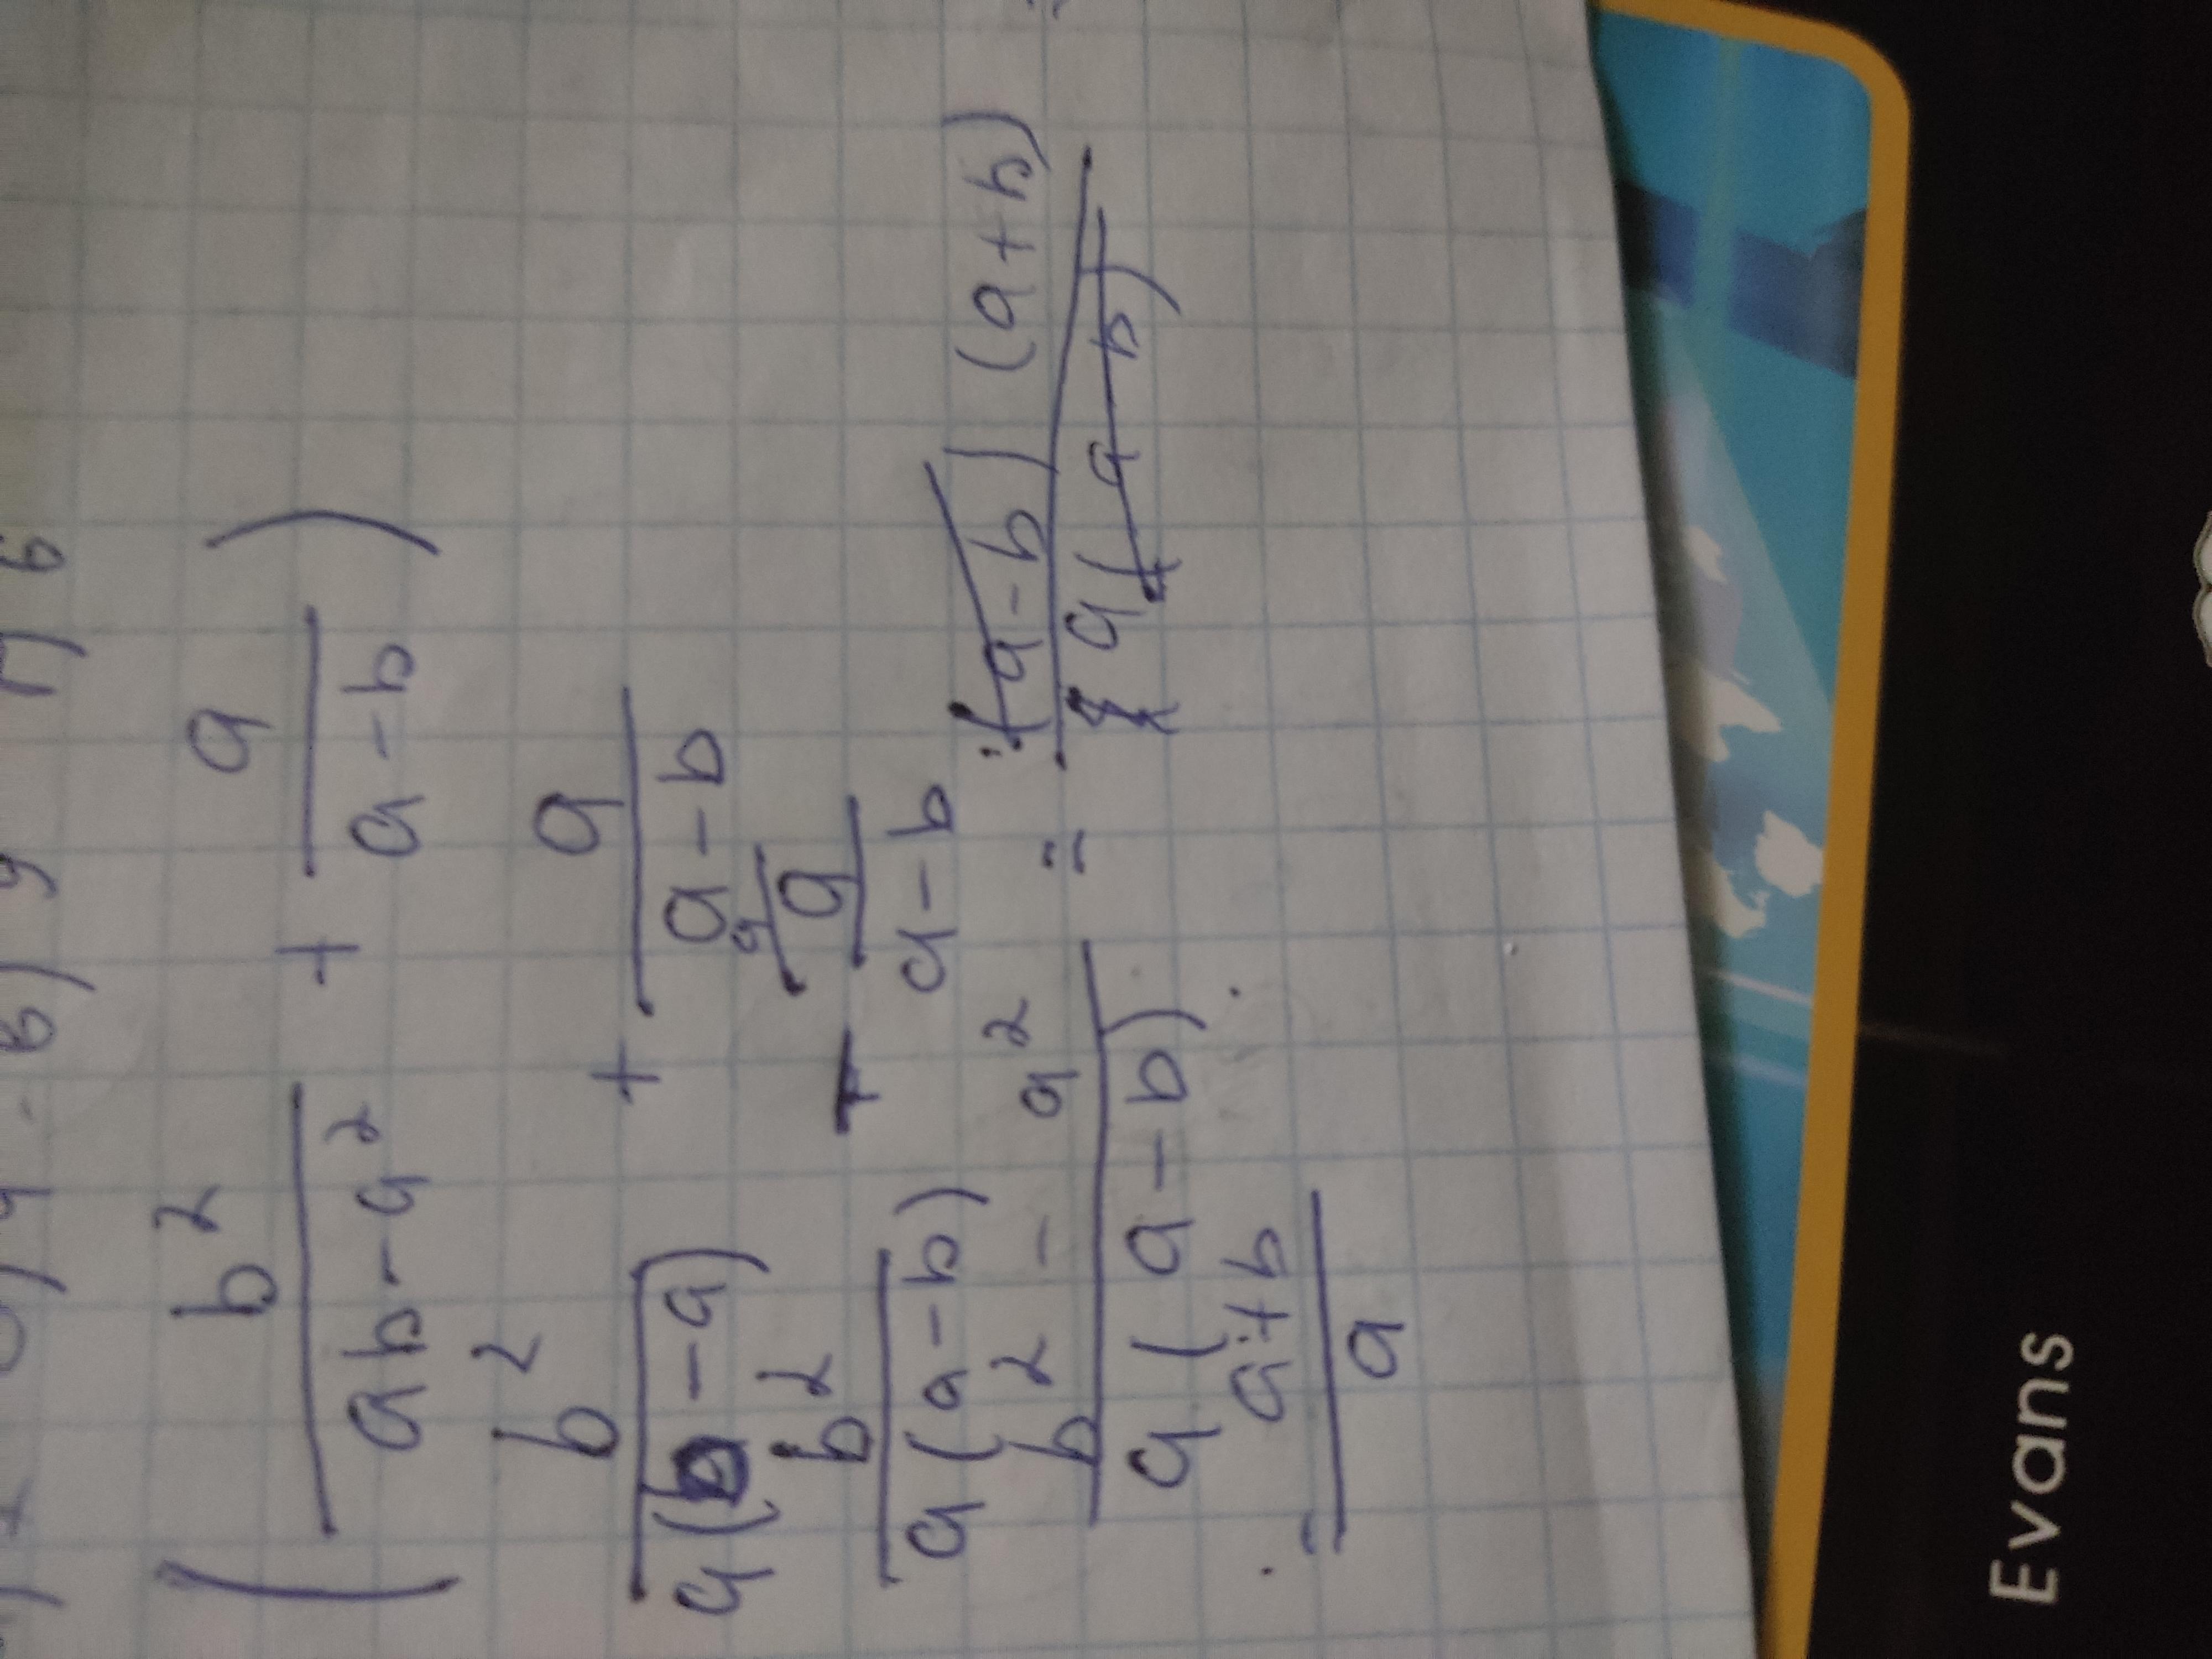 ( b² / (ab - a²) + a / (a - b) )
b² / (a(b - a)) + a / (a - b)
b² / (a(a - b)) + a / (a - b)
(b² - a²) / (a(a - b)) = (a - b)(a + b) / (a(a b))
= (a + b) / a
Evans